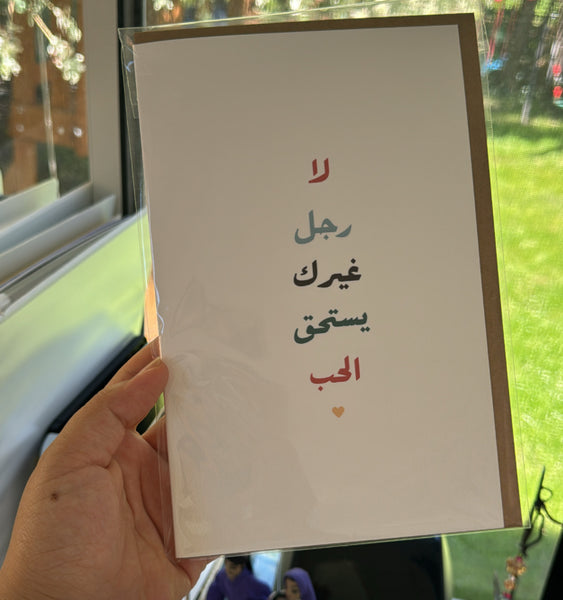 لا
رجل
غيرك
يستحق
الحب